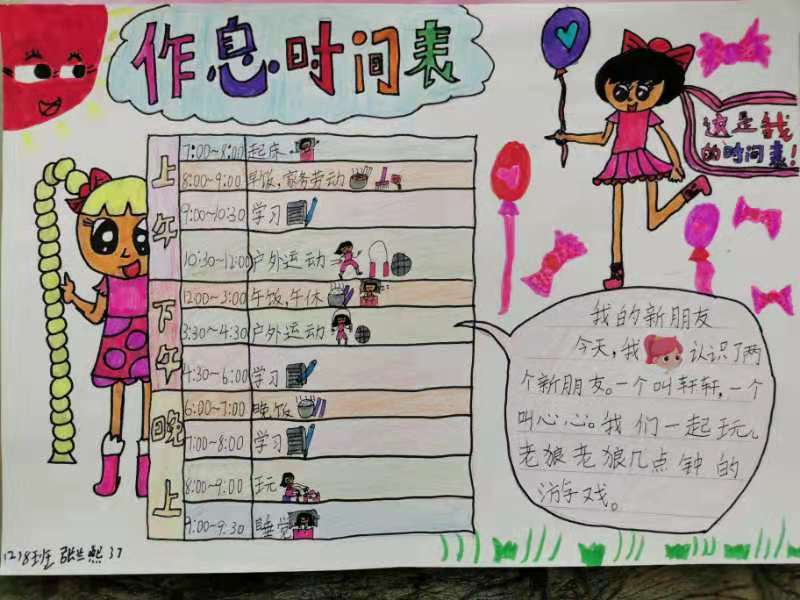 作息时间表
这是我
的时间表!
上午
7:00~8:00 起床
8:00~9:00 早饭、家务劳动
9:00~10:30 学习
10:30~12:00 户外运动
下午
12:00~3:00 午饭、午休
3:30~4:30 户外运动
4:30~6:00 学习
晚上
6:00~7:00 晚饭
7:00~8:00 学习
8:00~9:00 玩
9:00~9:30 睡觉
我的新朋友
今天,我认识了两
个新朋友。一个叫轩轩,一个
叫心心。我们一起玩
老狼老狼几点钟的
游戏。
1218班 张 熙 37